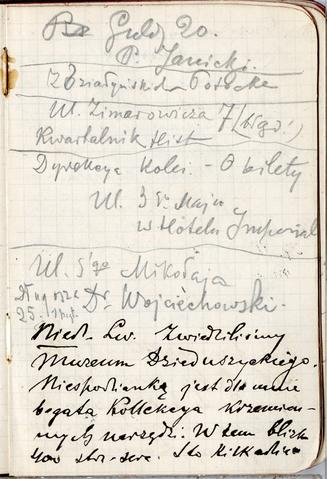 Guld 20.
P. Janicki.
z Działyńskich Potocka
Ul. Zimorowicza 7
Kwartalnik Hist
Dyrekcya Kolei. - O bilety
Ul. 3 Maja
w Hotelu Imperial
Ul. Sgo Mikołaja
Dr. Wojciechowski.
25.
Niedz. Lw. Zwiedziliśmy
Muzeum Dzieduszyckiego.
Niespodzianką jest dla mnie
bogata Kollekcya Krzemien-
nych narzędzi. W tem blizko
400